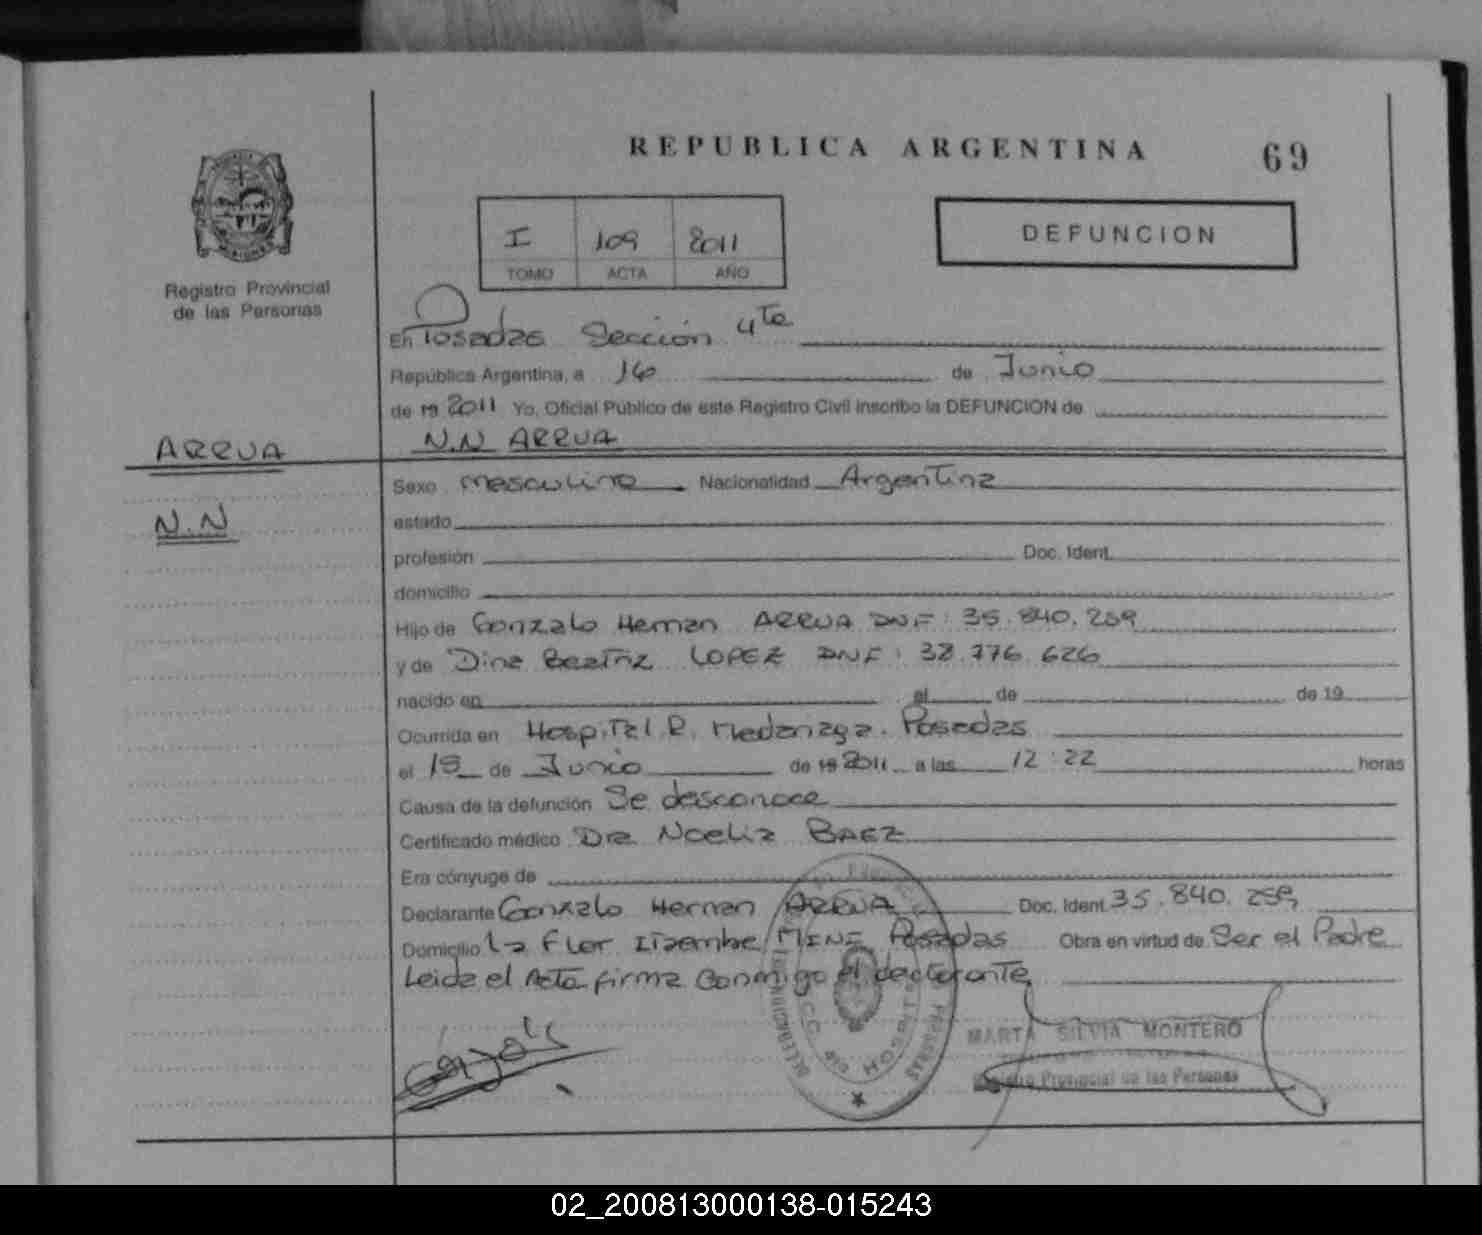 REPUBLICA ARGENTINA
69
I 109 2011
TOMO ACTA AÑO
DEFUNCION
Registro Provincial
de las Personas
En Posadas Sección 4ta
República Argentina, a 16 de Junio
de 19 2011 Yo, Oficial Público de este Registro Civil inscribo la DEFUNCION de
ARRUA
N.N ARRUA
Sexo masculino Nacionalidad Argentina
N.N
estado
profesión Doc. Ident.
domicilio
Hijo de Gonzalo Hernan ARRUA DNI: 35.840.259
y de Dina Beatriz LOPEZ DNI: 38.776.626
nacido en el de de 19
Ocurrida en Hospital R. Madariaga. Posadas
el 15 de Junio de 19 2011 a las 12:22 horas
Causa de la defunción Se desconoce
Certificado médico Dra Noelia BAEZ
Era cónyuge de
Declarante Gonzalo Hernan ARRUA Doc. Ident. 35.840.259
Domicilio La Flor Itaembe MINI Posadas Obra en virtud de Ser el Padre
Leida el Acta firma conmigo el declarante
MARTA SILVIA MONTERO
Registro Provincial de las Personas
02_200813000138-015243